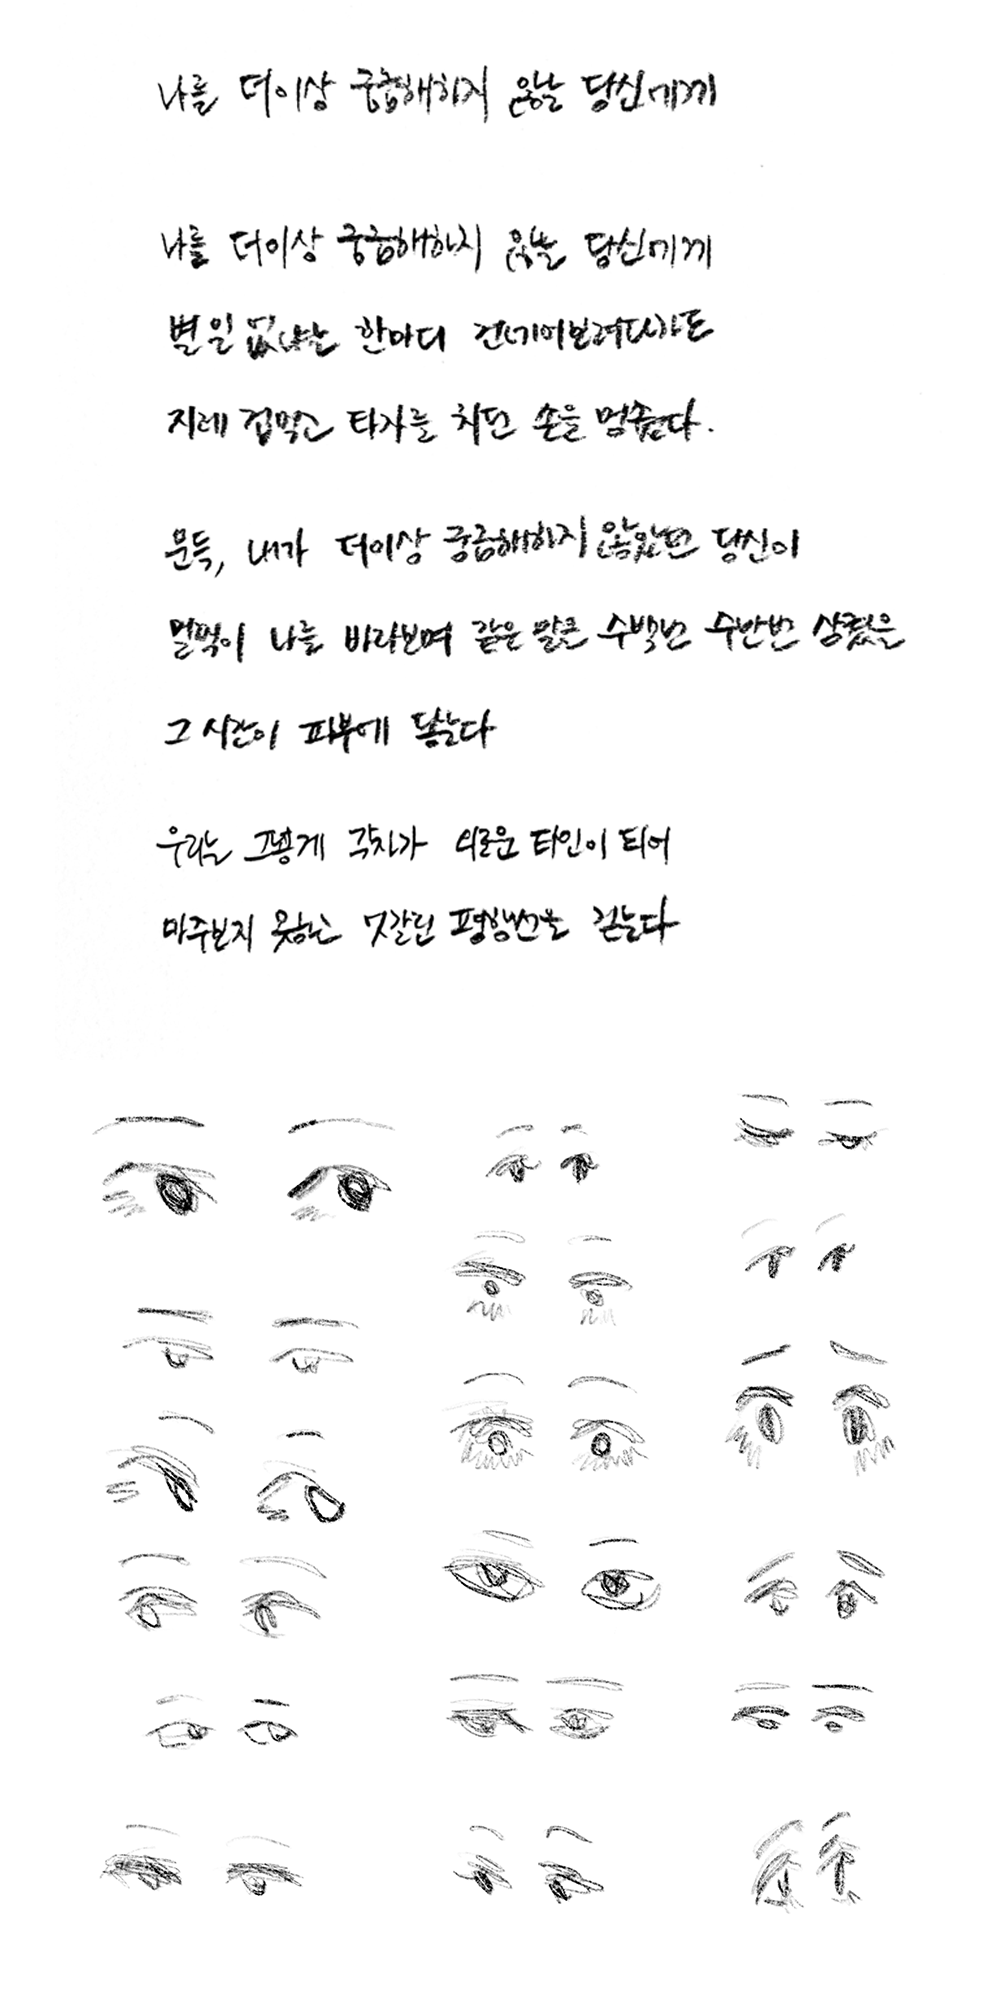 나를 더이상 궁금해하지 않는 당신에게
나를 더이상 궁금해하지 않는 당신에게
별일 없냐는 한마디 건네어보려다가도
지레 겁먹고 타자를 치던 손을 멈춘다.
문득, 내가 더이상 궁금해하지 않았던 당신이
멀찍이 나를 바라보며 같은 말을 수백번 수만번 삼켰을
그 시간이 피부에 닿는다
우리는 그렇게 각자가 외로운 타인이 되어
마주보지 못하는 엇갈린 평행선을 걷는다